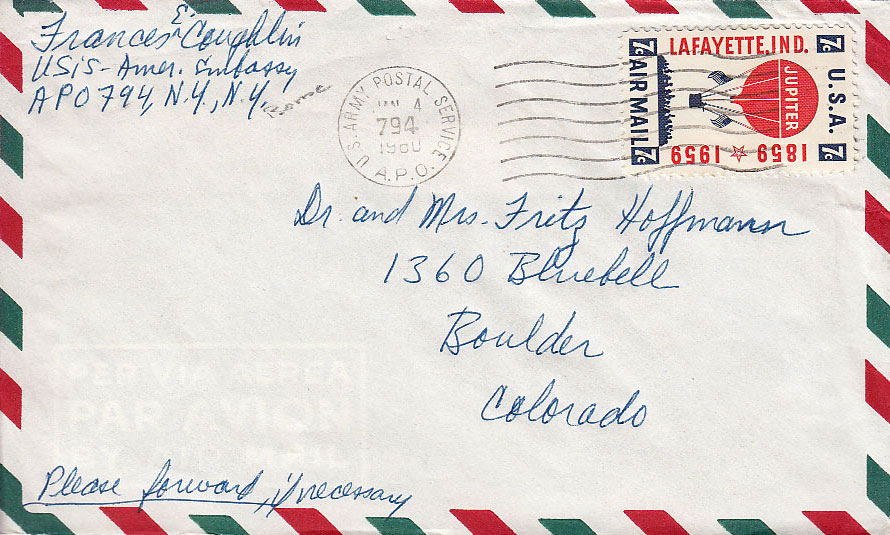 Frances E. Coughlin
USIS - Amer. Embassy
APO 794, N.Y., N.Y.
Rome
U.S. ARMY POSTAL SERVICE
JAN 4
794
1960
A.P.O.
LAFAYETTE, IND.
7c
7c
AIR MAIL
JUPITER
U.S.A.
1859 ☆ 1959
7c
7c
Dr. and Mrs. Fritz Hoffmann
1360 Bluebell
Boulder
Colorado
Please forward, if necessary